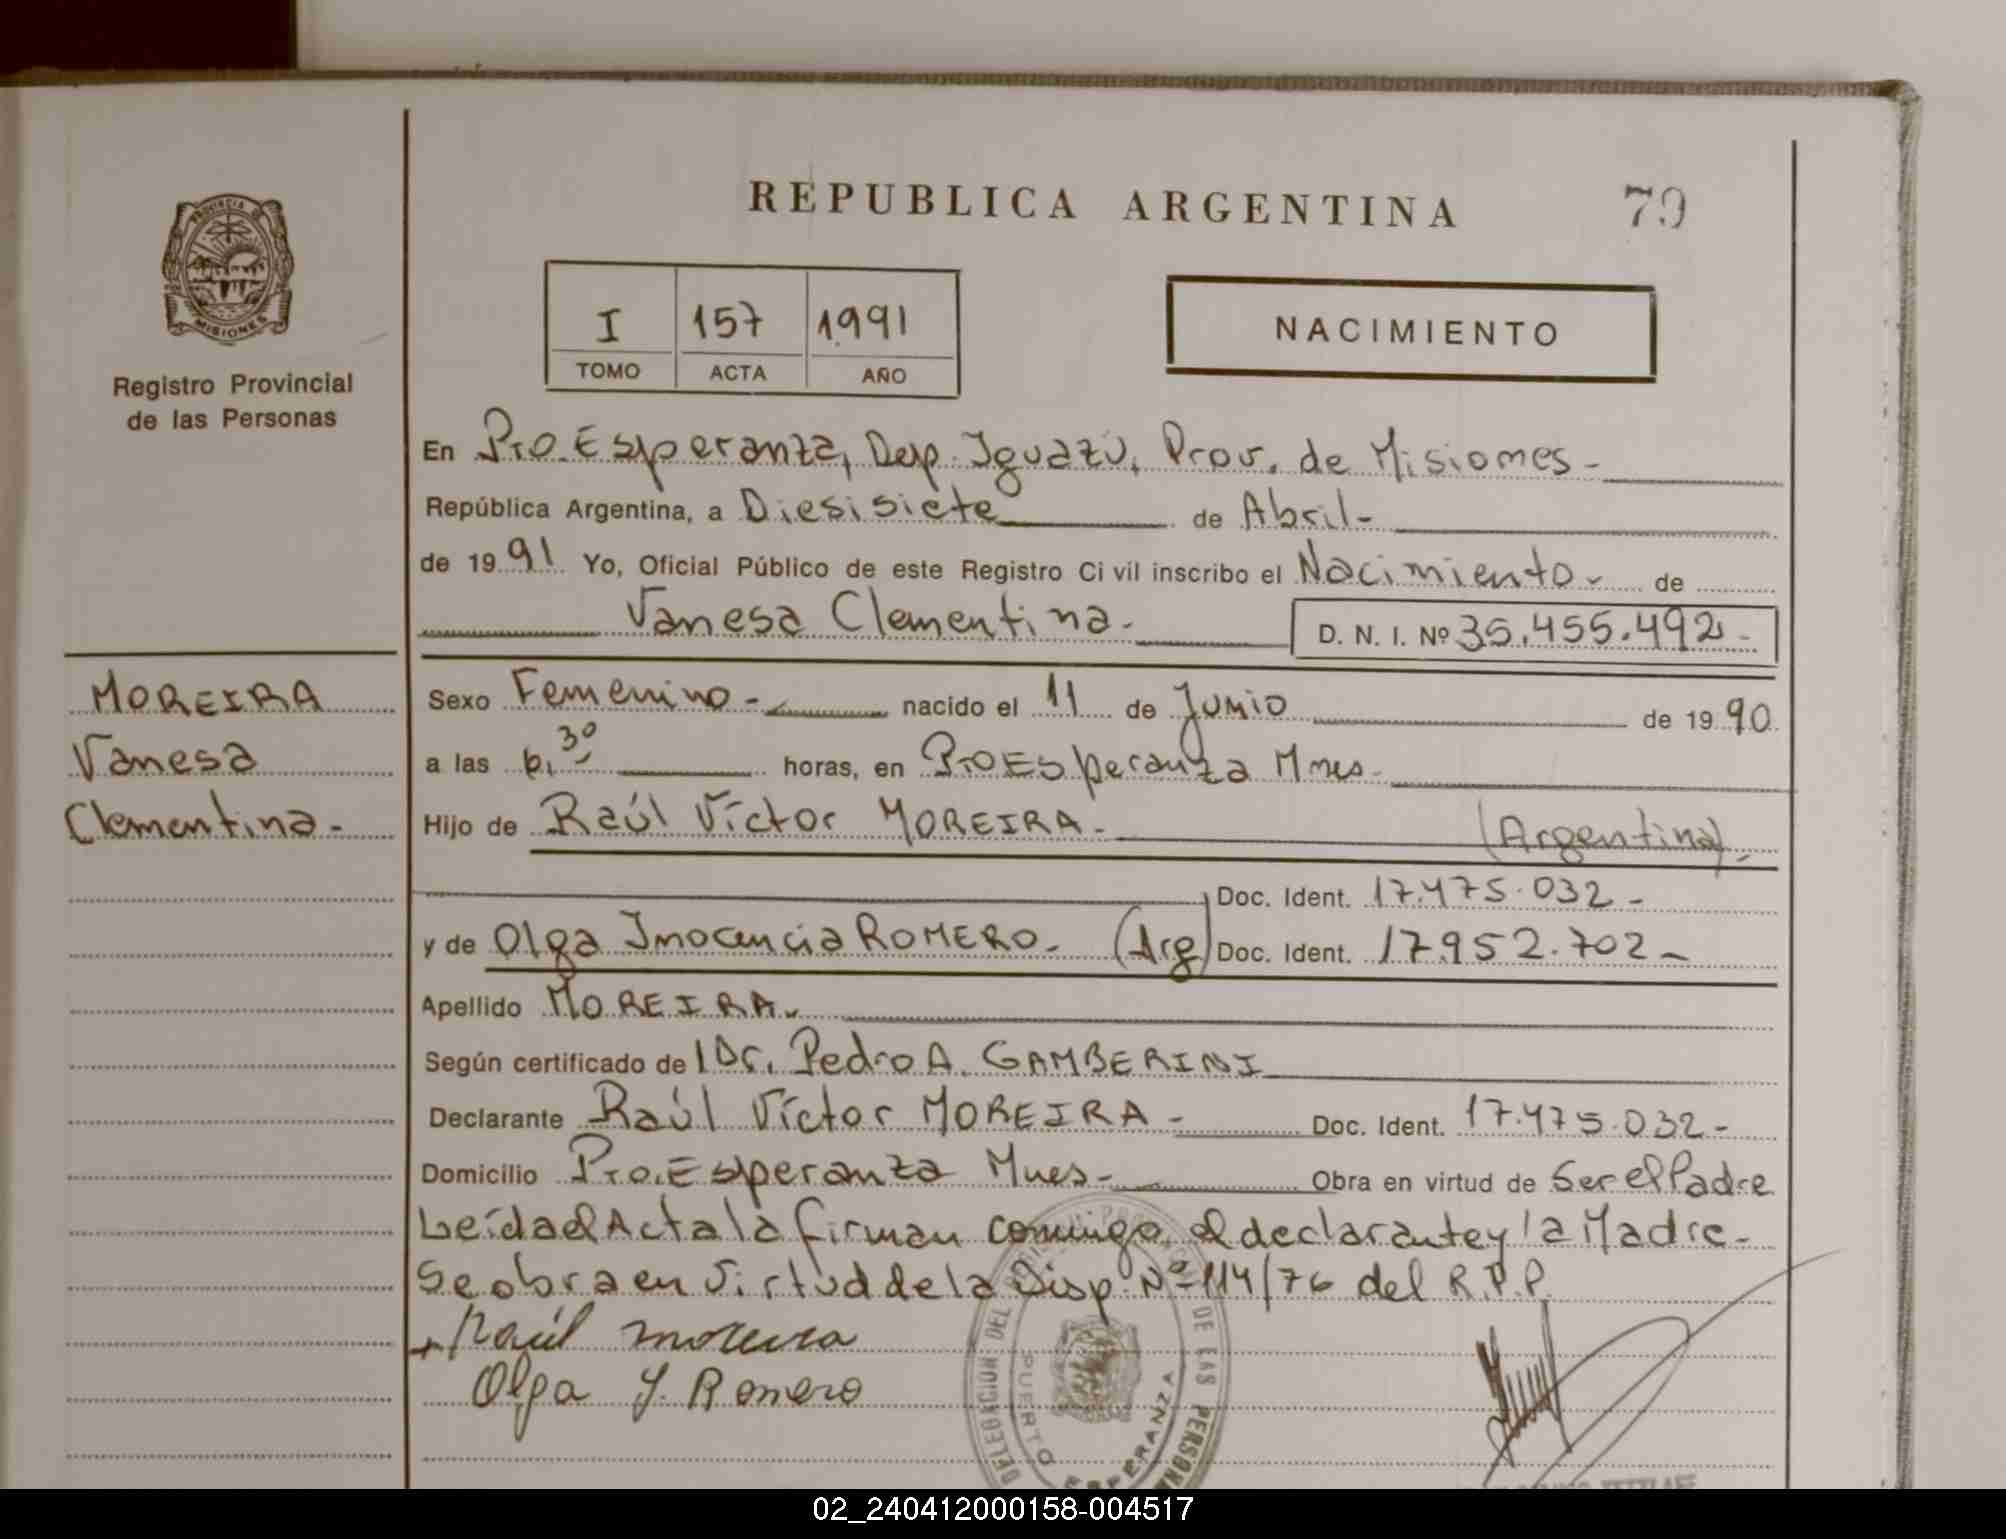 REPUBLICA ARGENTINA
79
PROVINCIA DE
MISIONES
Registro Provincial
de las Personas
I 157 1991
TOMO ACTA AÑO
NACIMIENTO
En Pto. Esperanza, Dep. Iguazú, Prov. de Misiones-
República Argentina, a Diesisiete de Abril-
de 1991 Yo, Oficial Público de este Registro Civil inscribo el Nacimiento- de
Vanesa Clementina-
D. N. I. Nº 35.455.492-
MOREIRA
Vanesa
Clementina-
Sexo Femenino- nacido el 11 de Junio de 1990
a las 6,30 horas, en Pto Esperanza Mnes-
Hijo de Raúl Víctor MOREIRA- (Argentina)-
Doc. Ident. 17.475.032-
y de Olga Inocencia ROMERO- (Arg) Doc. Ident. 17.952.702-
Apellido MOREIRA-
Según certificado de Dr. Pedro A. GAMBERINI
Declarante Raúl Víctor MOREIRA- Doc. Ident. 17.475.032-
Domicilio Pto. Esperanza Mnes- Obra en virtud de Ser el Padre
Leída el Acta la firman conmigo el declarante y la Madre-
Se obra en Virtud de la Disp. Nº 114/76 del R.P.P.
Raúl Moreira
Olga I. Romero
DELEGACION DEL DE LAS PERSONAS
PUERTO ESPERANZA
02_240412000158-004517